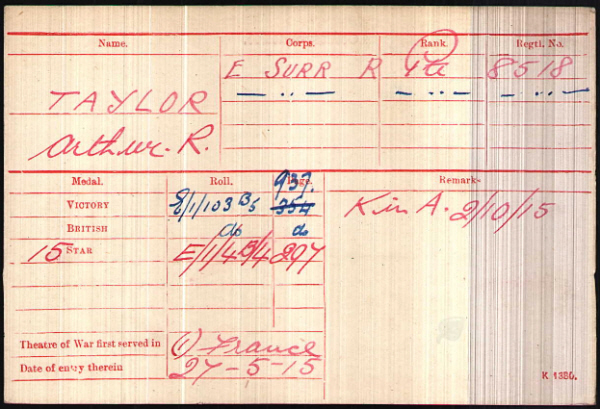 Name. Corps. Rank. Regtl. No.
E SURR R Pte 8518
— " — — " — — " —
TAYLOR
Arthur. R.
Medal. Roll. Page. Remarks
937.
VICTORY E/1/103 B5 354
BRITISH do do
15 STAR E/1/4 B/4 297
K in A. 2/10/15
Theatre of War first served in (1) France
Date of entry therein 27-5-15
K 1380.